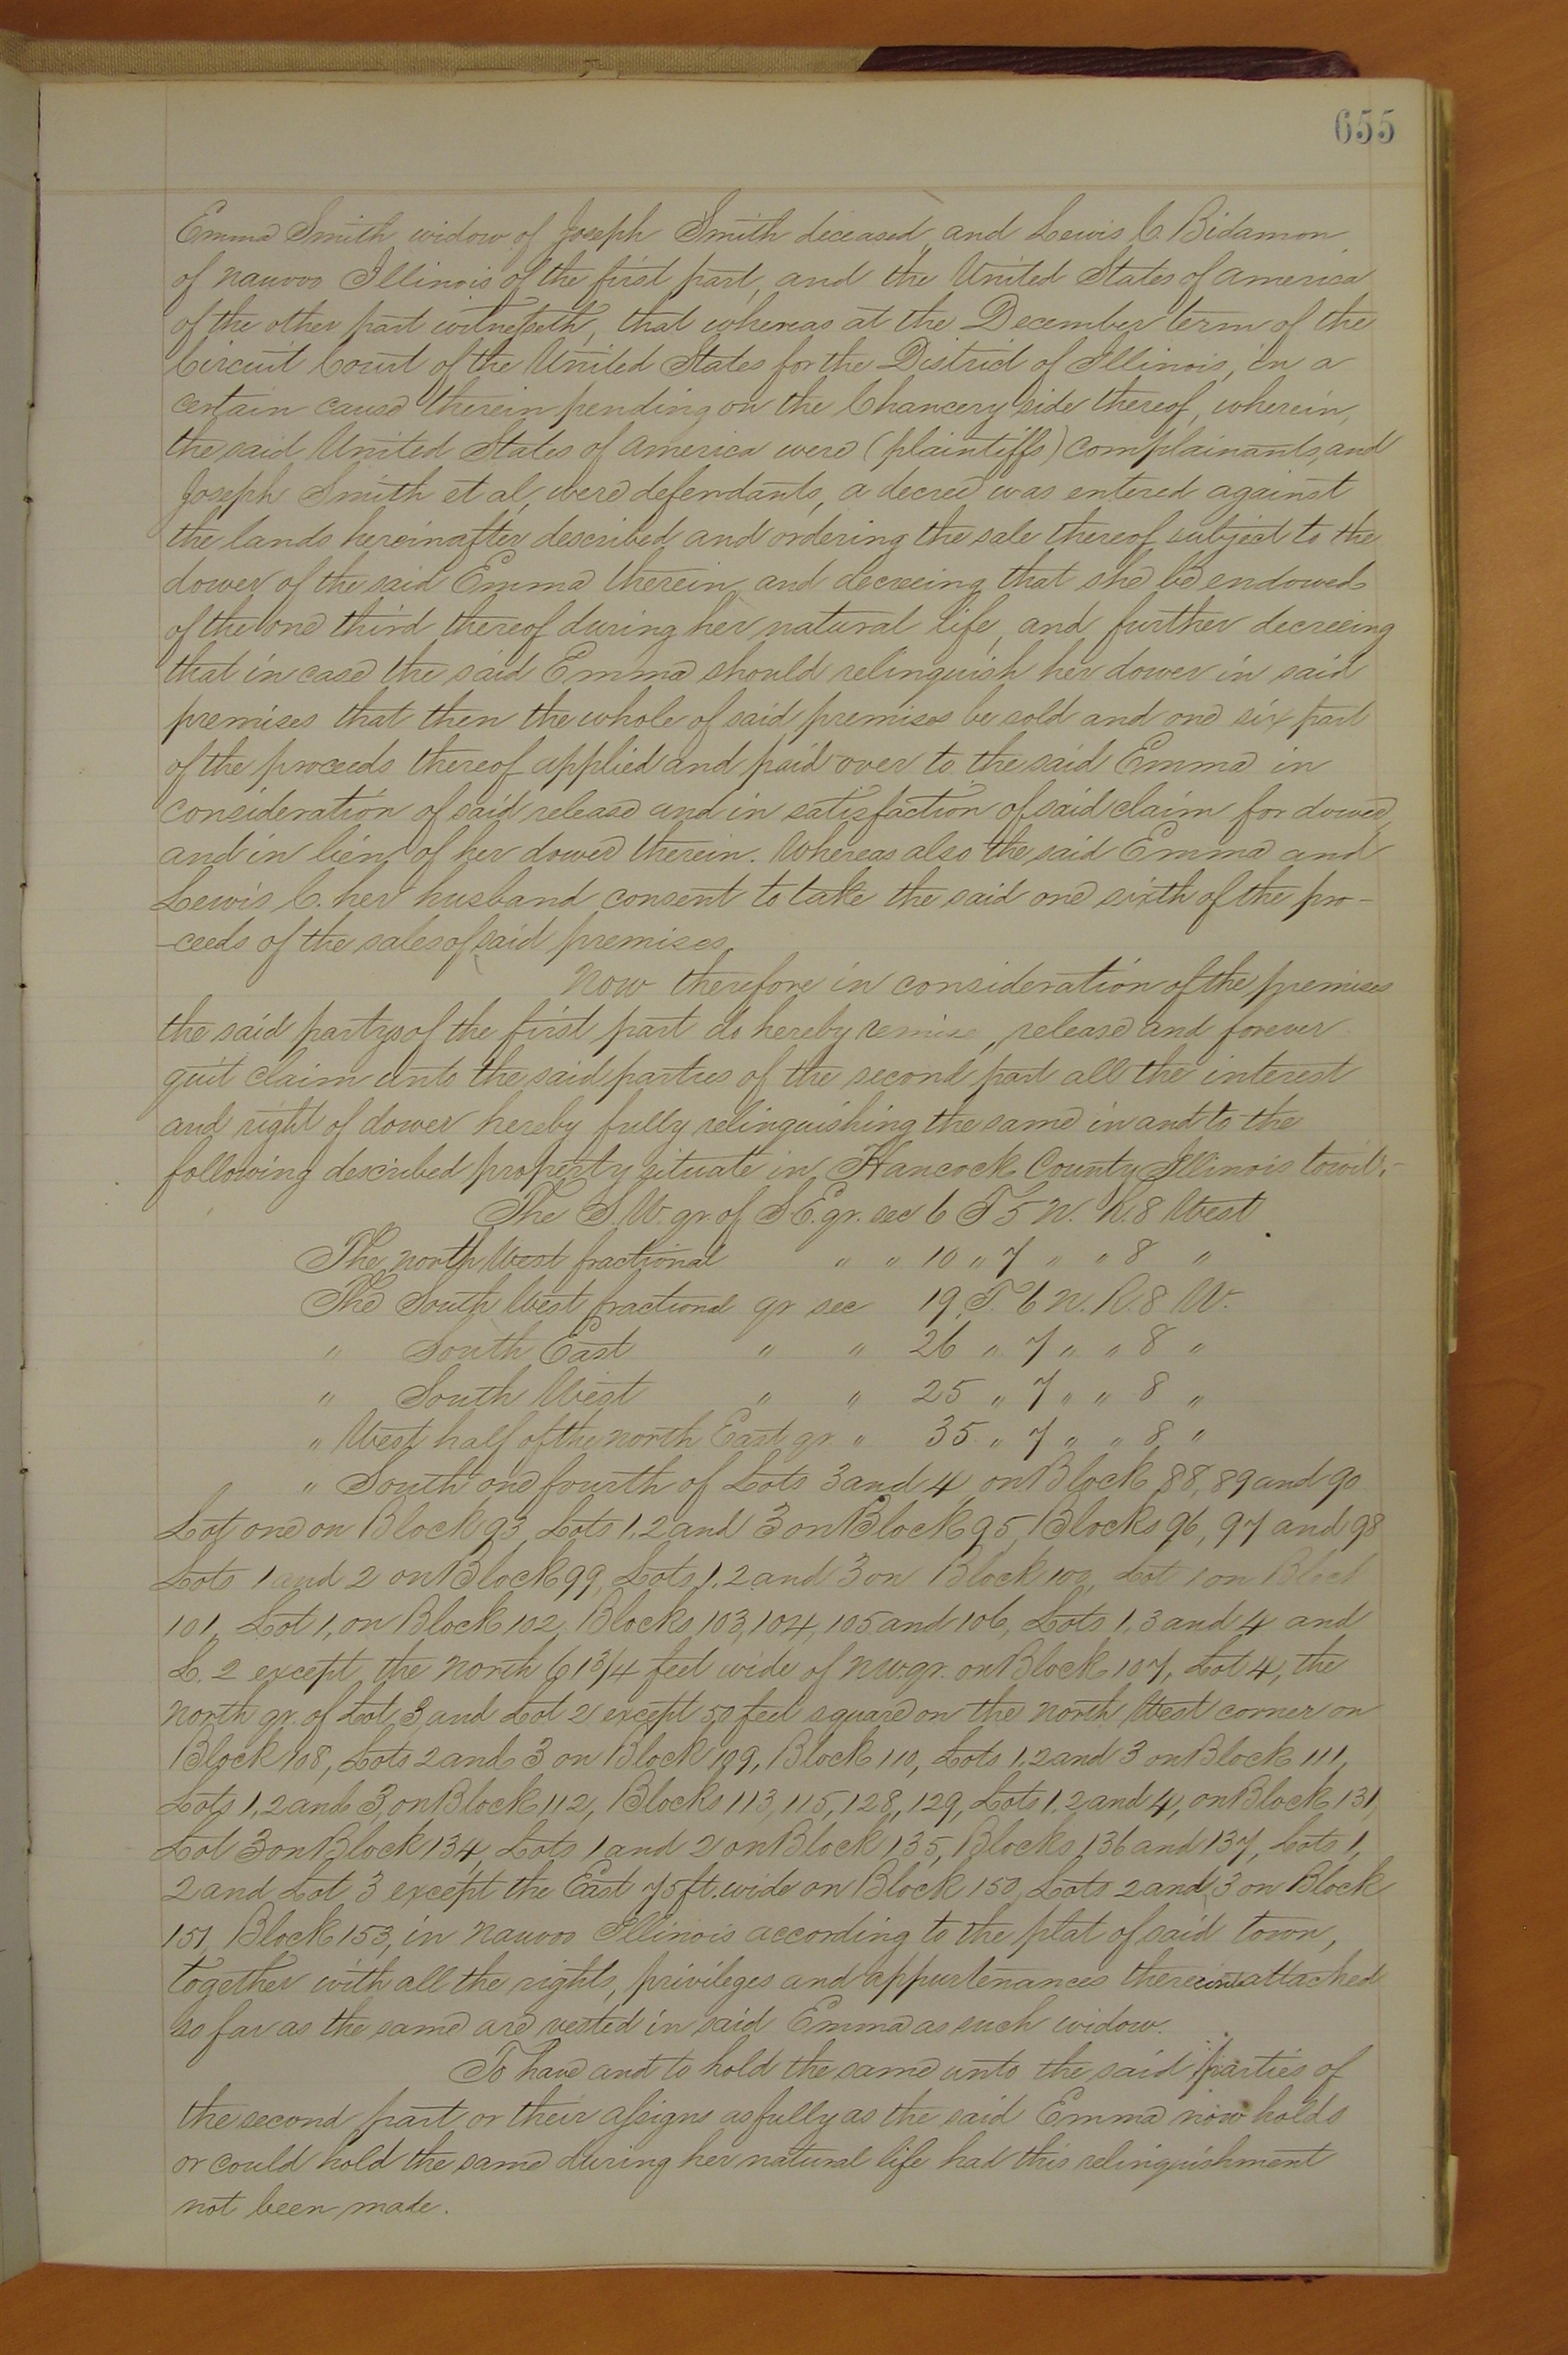 655
Emma Smith widow of Joseph Smith deceased, and Lewis C. Bidamon
of Nauvoo Illinois of the first part, and the United States of America
of the other part witnesseth, that whereas at the December term of the
Circuit Court of the United States for the District of Illinois, in a
certain cause therein pending on the Chancery side thereof, wherein,
the said United States of America were (plaintiffs) complainants, and
Joseph Smith et al, were defendants, a decree was entered against
the lands hereinafter described and ordering the sale thereof subject to the
dower of the said Emma therein, and decreeing that she be endowed
of the one third thereof during her natural life, and further decreeing
that in case the said Emma should relinquish her dower in said
premises that then the whole of said premises be sold and one six part
of the proceeds thereof applied and paid over to the said Emma in
consideration of said release and in satisfaction of said claim for dower,
and in lieu of her dower therein. Whereas also the said Emma and
Lewis C. her husband consent to take the said one sixth of the pro-
-ceeds of the sales of said premises.
Now therefore in consideration of the premises
the said partys of the first part do hereby remise, release and forever
quit claim unto the said parties of the second part all the interest
and right of dower hereby fully relinquishing the same in and to the
following described property situate in Hancock County Illinois towit:-
The S.W. qr. of S.E. qr. sec 6 T 5 N. R. 8 West
The North West fractional " " 10 " 7 " " 8 "
The South West fractional qr sec 19 T. 6 N. R. 8 W.
" South East " " 26 " 7 " " 8 "
" South West " " 25 " 7 " " 8 "
" West half of the North East qr. " 35 " 7 " " 8 "
" South one fourth of Lots 3 and 4 on Block 88, 89 and 90
Lot one on Block 93, Lots 1, 2 and 3 on Block 95, Blocks 96, 97 and 98
Lots 1 and 2 on Block 99, Lots 1, 2 and 3 on Block 100, Lot 1 on Block
101, Lot 1, on Block 102, Blocks 103, 104, 105 and 106, Lots 1, 3 and 4 and
L. 2 except the North 61 3/4 feet wide of NW qr. on Block 107, Lot 4, the
North qr. of Lot 3, and Lot 2 except 50 feet square on the North West corner on
Block 108, Lots 2 and 3 on Block 109, Block 110, Lots 1, 2 and 3 on Block 111,
Lots 1, 2 and 3, on Block 112, Blocks 113, 115, 128, 129, Lots 1, 2 and 4, on Block 131,
Lot 3 on Block 134, Lots 1 and 2 on Block 135, Blocks 136 and 137, Lots 1,
2 and Lot 3 except the East 75 ft. wide on Block 150, Lots 2 and 3 on Block
151, Block 153, in Nauvoo Illinois according to the plat of said town,
together with all the rights, privileges and appurtenances thereunto attached
so far as the same are vested in said Emma as such widow.
To have and to hold the same unto the said parties of
the second part or their assigns as fully as the said Emma now holds
or could hold the same during her natural life had this relinquishment
not been made.